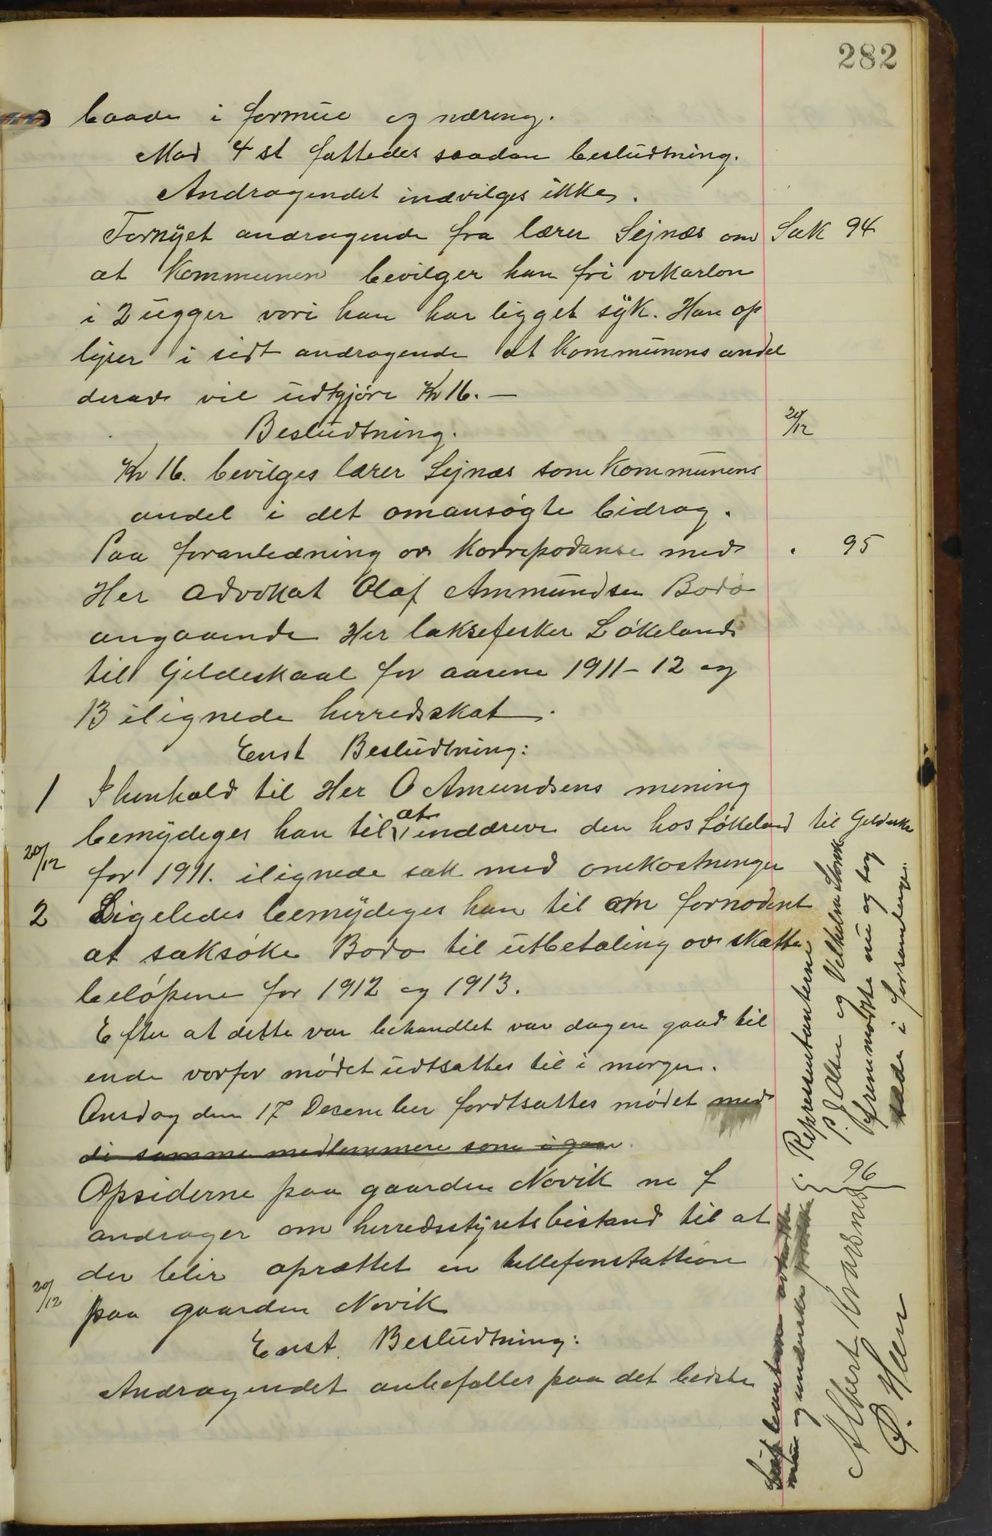 282
baade i formue og næring.
Mod 4 st fattedes saadan besludtning.
Andragendet indvilges ikke.
Fornyet andragende fra lærer Sejnæs om Sak 94
at Kommunen bevilger ham fri vikarløn
i 2 ugger vori han har ligget syk. Han op
lyser i sidt andragende at Kommunens andel
derav vil udtgjøre Kr 16. —
Besludtning. 20/12
Kr 16. bevilges lærer Sejnæs som Kommunens
andel i det omansøgte bidrag.
Paa foranledning ov Korrepodanse med " 95
Her Advokat Olaf Ammundsen Bodø
angaaende Her laksefesker Løkeland
til Gildeskaal for aarene 1911 - 12 og
13 ilignede herredsskat.
Enst Besludtning:
1 I henhold til Her O Amundsens mening
bemydeges han til at inddreve den hos Løkeland til Geldeska
20/12 for 1911. ilignede sak med omkostninger
2 Ligeledes bemydeges han til om fornødent
at saksøke Bodø til utbetaling ov skatte
beløpene for 1912 og 1913.
Efter at dette var behandlet var dagen gaad til
ende vorfor mødet udtsattes til i morgen.
Onsdag den 17 Desember fordtsattes mødet med
di samme medlemmere som i gaar.
Opsiderne paa gaarden Novik ne f 96
andrager om herredsstyrets bistand til at
der blir oprættet en tellefonstattion
20/12 paa gaarden Novik
Enst. Besludtning:
Andragendet anbefalles paa det bedste
Representanterne
P. J. Olsen og Vilhelm
fremmødte nu og tog
sæde i forsamlingen.
Albert Kvarsnes
P. Steen